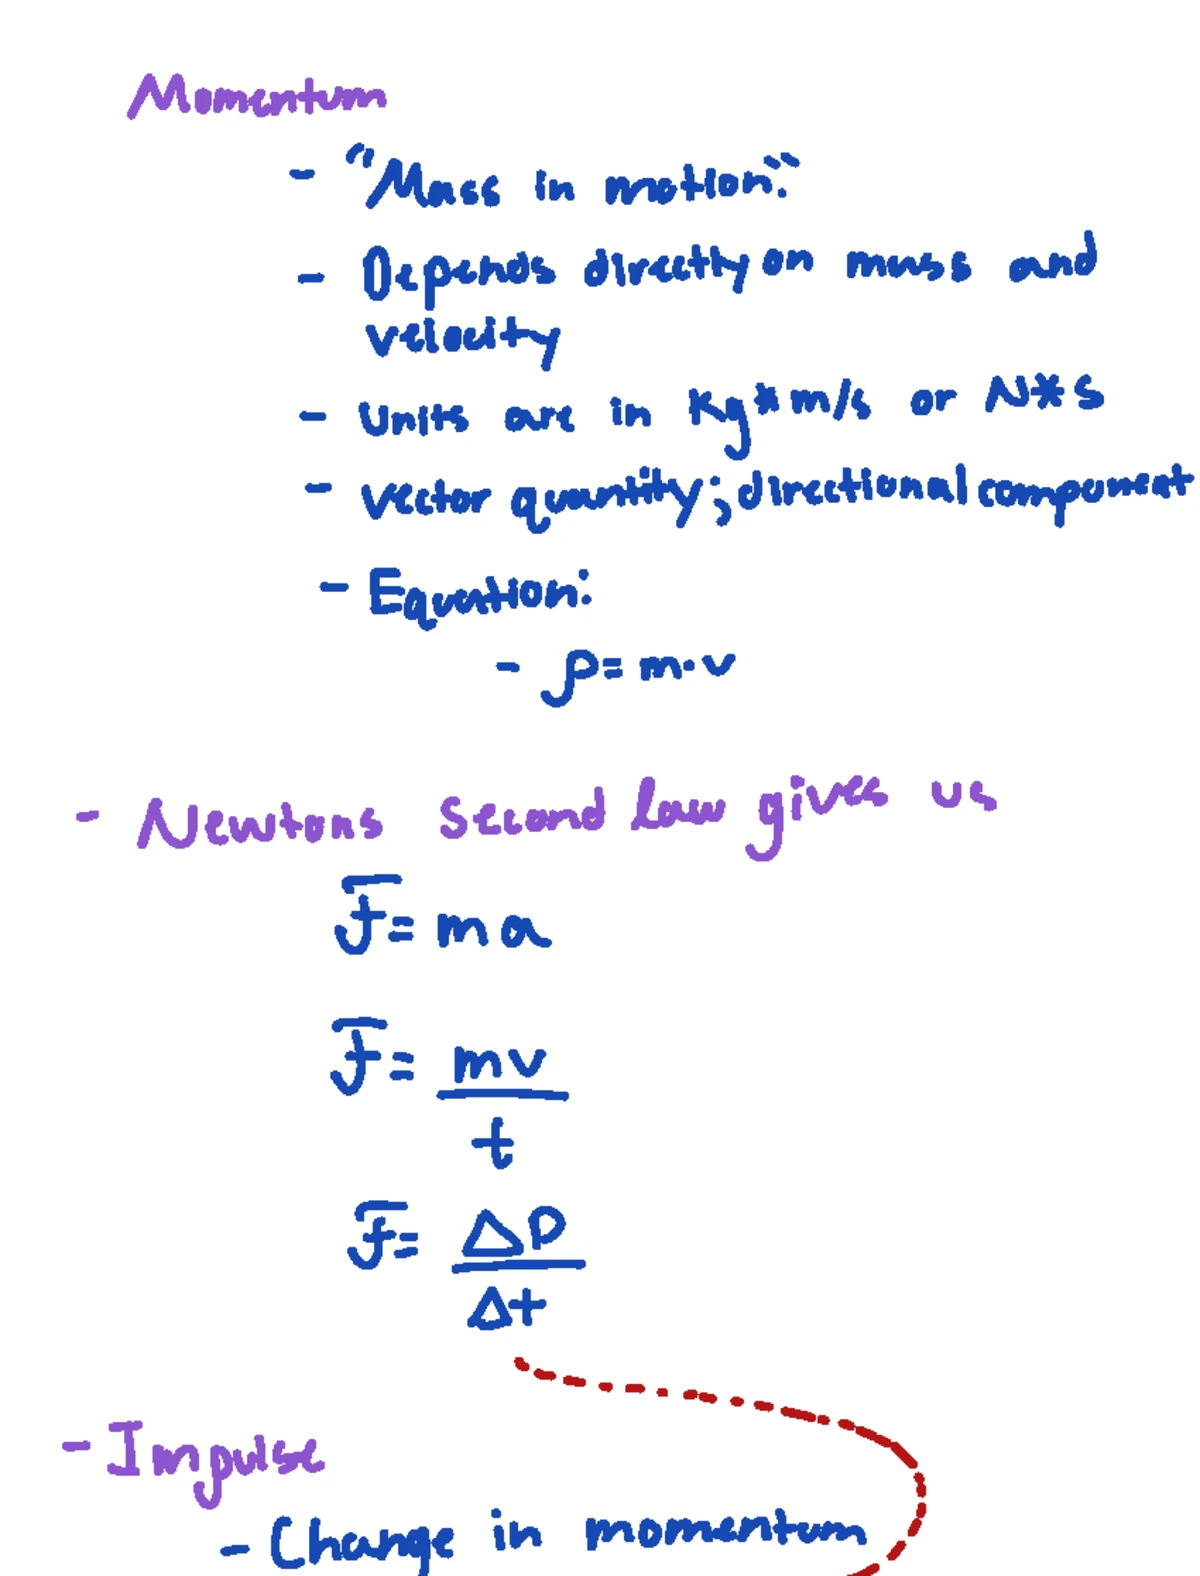 Momentum
- "Mass in motion."
- Depends directly on mass and
velocity
- Units are in Kg*m/s or N*s
- vector quantity; directional component
- Equation:
- p = m·v
- Newtons Second law gives us
F̅ = ma
F̅ = mv
t
F̅ = ΔP
Δt
- Impulse
- Change in momentum